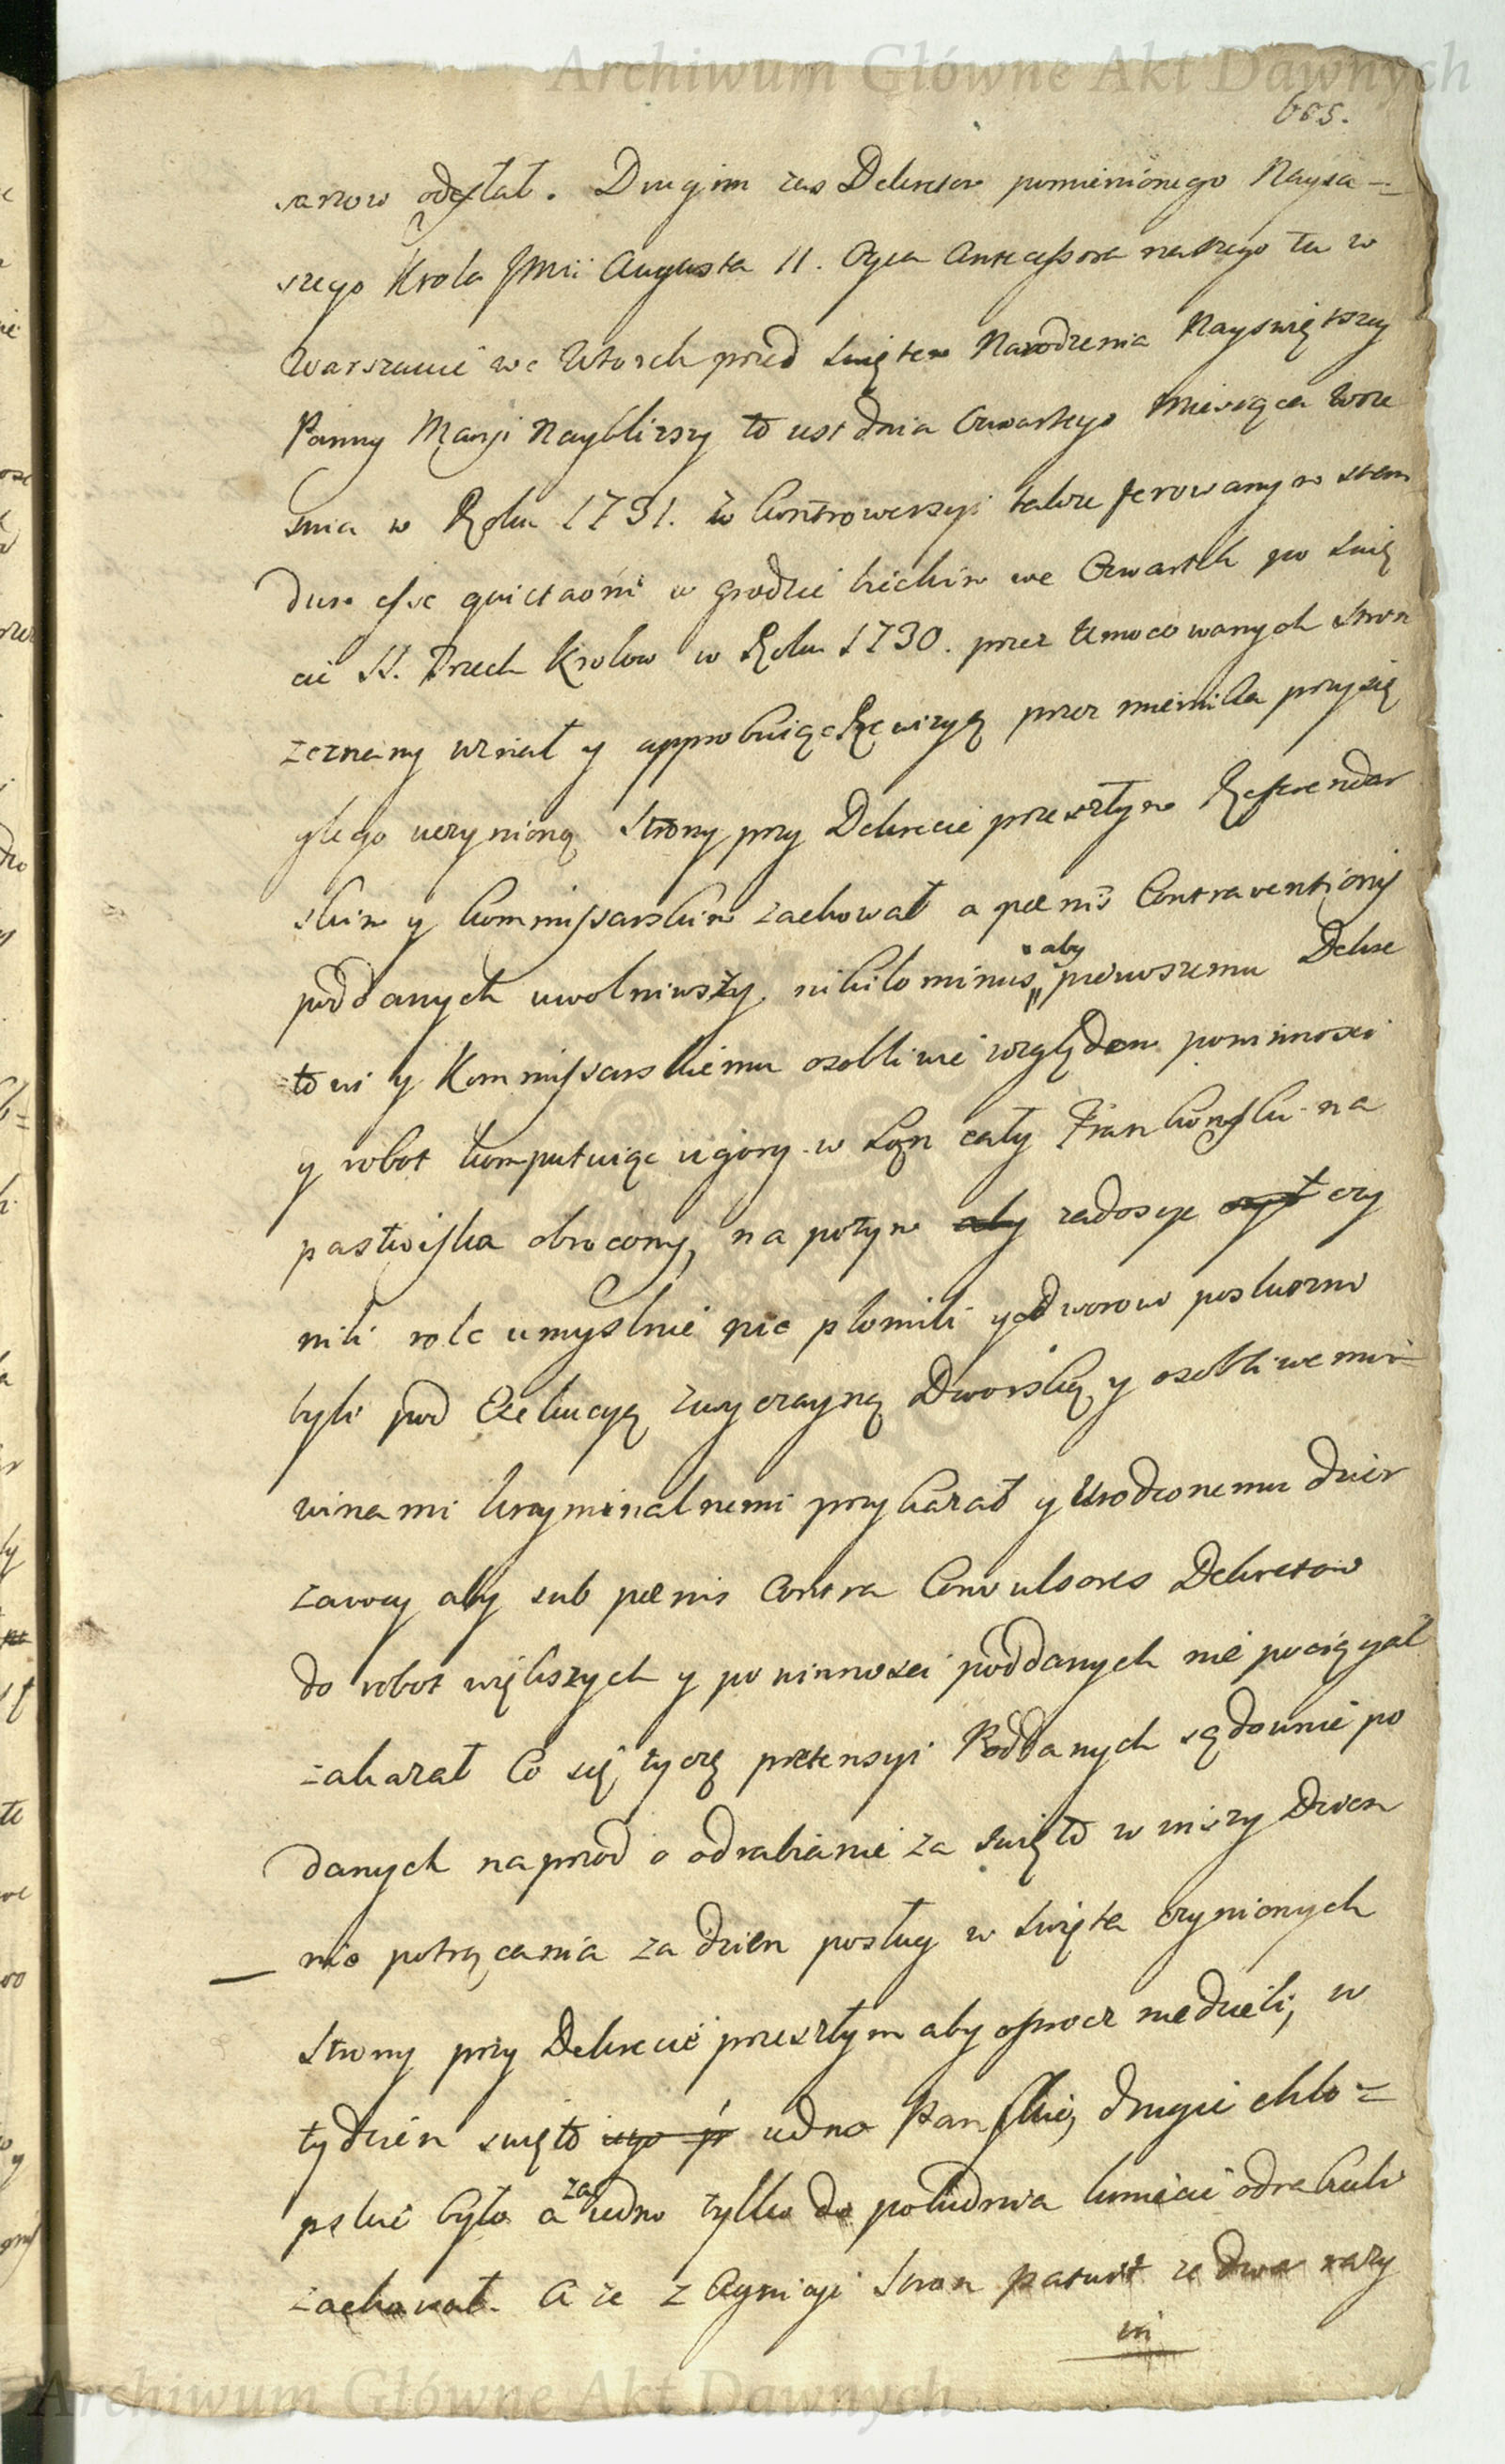 Archiwum Główne Akt Dawnych
605.
sarzow odesłał. Drugim zas Dekretem pomienionego Nayia-
szego Krola Jmci Augusta II. Oyca Antecessora naszego tu w
Warszawie we Wtorek przed Swiętem Narodzenia Nayswiętszey
Panny Maryi Naybliższy to iest dnia Czwartego Miesiąca Wrze
snia w Roku 1731. w Controwersyi także ferowanym
esse quietaōni w grodzie we Czwartek po Swię
cie SS. Trzech Krolow w Roku 1730. przez Umocowanych Stron
zeznany uznał y approbuiąc Rewizyą przez miernika przysię
głego uczynioną Strony przy Dekrecie przeszłym Referendar
skim y Kommissarskim zachował a pœnis Contraventionis
poddanych uwolniwszy, nihilominus aby pierwszemu Dekre
towi y Kommissarskiemu osobliwie względem powinnosci
y robot komputuiąc ugory w Łan cały Frankońsku na
pastwiska obrocony, na potym aby zadosyc czy
nili role umyslnie nie płonili y dworowi posłuszni
byli pod Exekucyą zwyczayną Dworską y osobliwemi
winami kryminalnemi przykazał y Urodzonemu dzier
zawcy aby sub pœnis Contra Convulsores Dekretow
do robot większych y powinnosci poddanych nie pociągał
zakazał Co się tyczę pretensyi Poddanych sądownie po
danych naprzod o odrabianie za swięto w niższy Dzien
nie potrącania za dzien posług w swięta czynionych
Strony przy Dekrecie przeszłym aby oprocz niedzieli, w
tydzien swięto iedno Panskie, drugie chło-
pskie było a za iedno tylko do południa kmiecie odrabiali
zachował. A ze z Stron patuit ze dwa razy
wi
Archiwum Główne Akt Dawnych